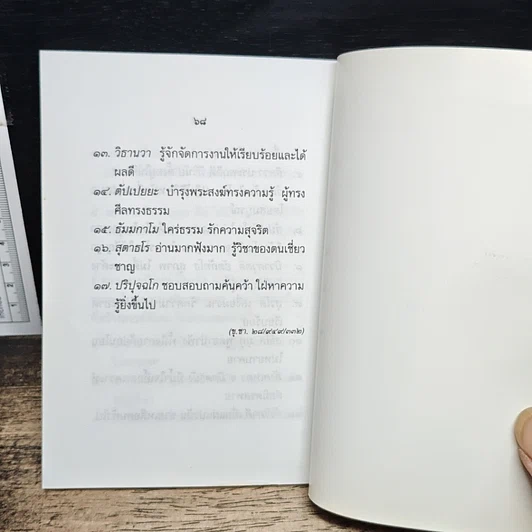 ๖๘
๑๓. วิธานวา รู้จักจัดการงานให้เรียบร้อยและได้
ผลดี
๑๔. ตัปเปยยะ บำรุงพระสงฆ์ทรงความรู้ ผู้ทรง
ศีลทรงธรรม
๑๕. ธัมมกาโม ใคร่ธรรม รักความสุจริต
๑๖. สุตาธโร อ่านมากฟังมาก รู้วิชาของตนเชี่ยว
ชาญ
๑๗. ปริปุจฉโก ชอบสอบถามค้นคว้า ใฝ่หาความ
รู้ยิ่งขึ้นไป
(ขุ.ชา. ๒๘/๙๔๙/๓๓๒)